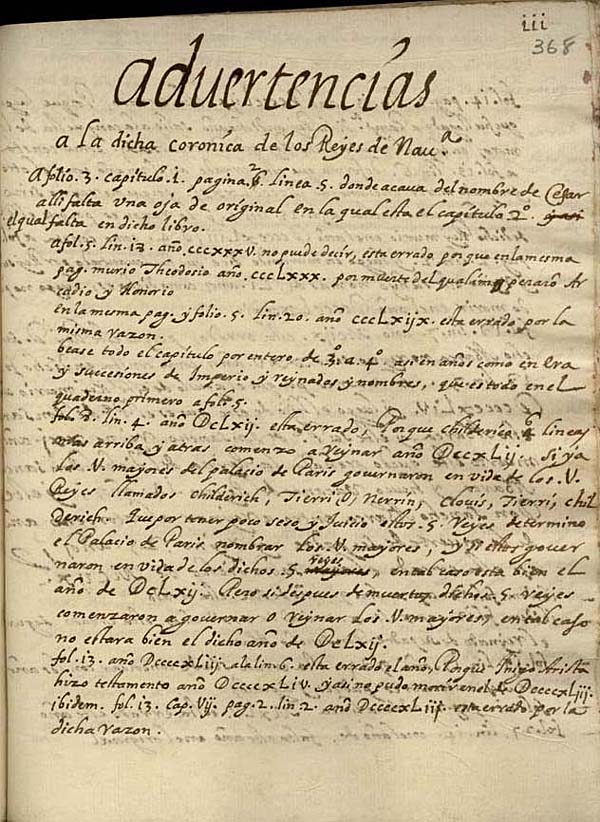 iii
368
aduertencias
a la dicha coronica de los Reyes de Nauᵃ.
A folio. 3. capitulo. 1. pagina. 2. linea. 5. donde acaua del nombre de Cesar
alli falta una oja de original en la qual esta el capitulo 2º.
el qual falta en dicho libro.
a fol. 5. lin. 13. año. cccxxxv. no puede decir, esta errado porque en la mesma
pag. murio Theodosio año. cccLxxx. por muerte del qual imperarõ Ar
cadio y Honorio
en la mesma pag. y folio. 5. lin. 20. año cccLxijx. esta errado por la
misma razon.
bease todo el capitulo por entero de 3º. a. 4º. asi en años como en Era
y sucesiones de Imperio y reynados y nombres, que es todo en el
quaderno primero a fol. 5.
fol. 7. lin. 4. año DcLxij. esta errado, Porque childerico 4 lineas
mas arriba y atras comenzo a Reynar año DccxLij. Si ya
los V. mayores del palacio de Paris gouernaron en vida de los V.
Reyes llamados childerich, Tierri O, Nerrin, clouis, Tierri, chil
derich. Que por tener poco seso y Juicio estos. 5. Reyes determino
el Palacio de Paris nombrar los. V. mayores, y si estos gouer
naron en vida de los dichos. 5. reyes, en tal caso esta bien el
año de DcLxij. Pero si despues de muertos dichos. 5. Reyes
comenzaron a gouernar O reynar los V. mayores, en tal caso
no estara bien el dicho año de DcLxij.
fol. 13. año DccccxLiij. a la lin. 6. esta errado el año, Iñigo Arista
hizo testamento año DccccxLiv. y asi no pudo morir en el DccccxLiij.
ibidem. fol. 13. cap. Vij. pag. 2. lin. 2. año DccccxLiij. esta errado por la
dicha razon.